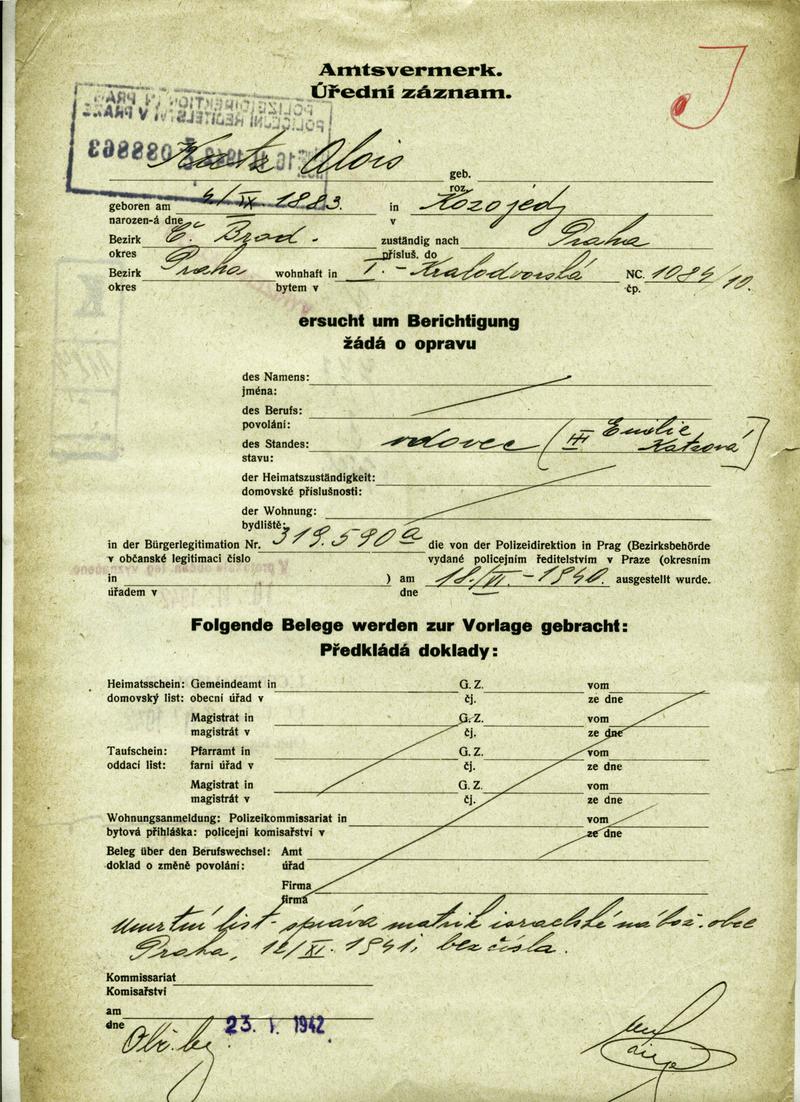 Amtsvermerk.
Úřední záznam.
J
POLIZEIDIREKTION IN PRAG
POLICEJNÍ ŘEDITELSTVÍ V PRAZE
088863
Katz Alois geb.
roz.
geboren am 4/IX. 1883. in Kozojedy
narozen-á dne v
Bezirk Č. Brod. zuständig nach Praha
okres přísluš. do
Bezirk Praha wohnhaft in I. - Kralodvorská NC. 1084/10.
okres bytem v čp.
ersucht um Berichtigung
žádá o opravu
des Namens:
jména:
des Berufs:
povolání:
des Standes: vdovec ( Emilie Katzová )
stavu:
der Heimatszuständigkeit:
domovské příslušnosti:
der Wohnung:
bydliště:
in der Bürgerlegitimation Nr. 319.590a die von der Polizeidirektion in Prag (Bezirksbehörde
v občanské legitimaci číslo vydané policejním ředitelstvím v Praze (okresním
in ) am 18./VI. - 1940. ausgestellt wurde.
úřadem v dne
Folgende Belege werden zur Vorlage gebracht:
Předkládá doklady:
Heimatsschein: Gemeindeamt in G. Z. vom
domovský list: obecní úřad v čj. ze dne
Magistrat in G. Z. vom
magistrát v čj. ze dne
Taufschein: Pfarramt in G. Z. vom
oddací list: farní úřad v čj. ze dne
Magistrat in G. Z. vom
magistrát v čj. ze dne
Wohnungsanmeldung: Polizeikommissariat in vom
bytová přihláška: policejní komisařství v ze dne
Beleg über den Berufswechsel: Amt
doklad o změně povolání: úřad
Firma
firma
Umrtní list - správa matrik israelské nábož. obce
Praha, 12/XI. 1941, bez čísla.
Kommissariat
Komisařství
am
dne 23. I. 1942